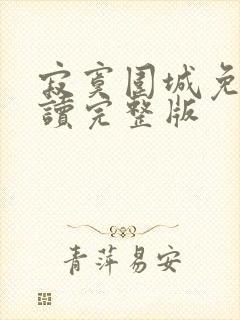 寂寞围城免
讀完整版
青萍易安